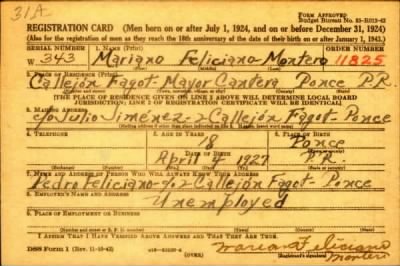 31A
FORM APPROVED
Budget Bureau No. 33-R012-42
REGISTRATION CARD (Men born on or after July 1, 1924, and on or before December 31, 1924)
(Also for the registration of men as they reach the 18th anniversary of the date of their birth on or after January 1, 1925.)
SERIAL NUMBER 1. NAME (Print) ORDER NUMBER
W 343 Mariano Feliciano-Montero 11825
2. PLACE OF RESIDENCE (Print)
Callejón Fagot-Mayor Cantera Ponce P.R.
[THE PLACE OF RESIDENCE GIVEN ON LINE 2 ABOVE WILL DETERMINE LOCAL BOARD
JURISDICTION; LINE 2 OF REGISTRATION CERTIFICATE WILL BE IDENTICAL]
3. MAILING ADDRESS
c/o Julio Jiménez-2 Callejón Fagot-Ponce
[Mailing address if other than place indicated on line 2. If same, insert word same]
4. TELEPHONE 5. AGE IN YEARS 6. PLACE OF BIRTH
18 Ponce
DATE OF BIRTH
April 4 1927 P.R.
(Exchange) (Number) (Mo.) (Day) (Yr.) (State or country)
7. NAME AND ADDRESS OF PERSON WHO WILL ALWAYS KNOW YOUR ADDRESS
Pedro Feliciano-Callejón Fagot-Ponce
8. EMPLOYER'S NAME AND ADDRESS
Unemployed
9. PLACE OF EMPLOYMENT OR BUSINESS
(Number and street or R. F. D. number) (Town) (County) (State)
I AFFIRM THAT I HAVE VERIFIED ABOVE ANSWERS AND THAT THEY ARE TRUE.
DSS Form 1 (Rev. 11-16-42)
Mariano Feliciano
Montero